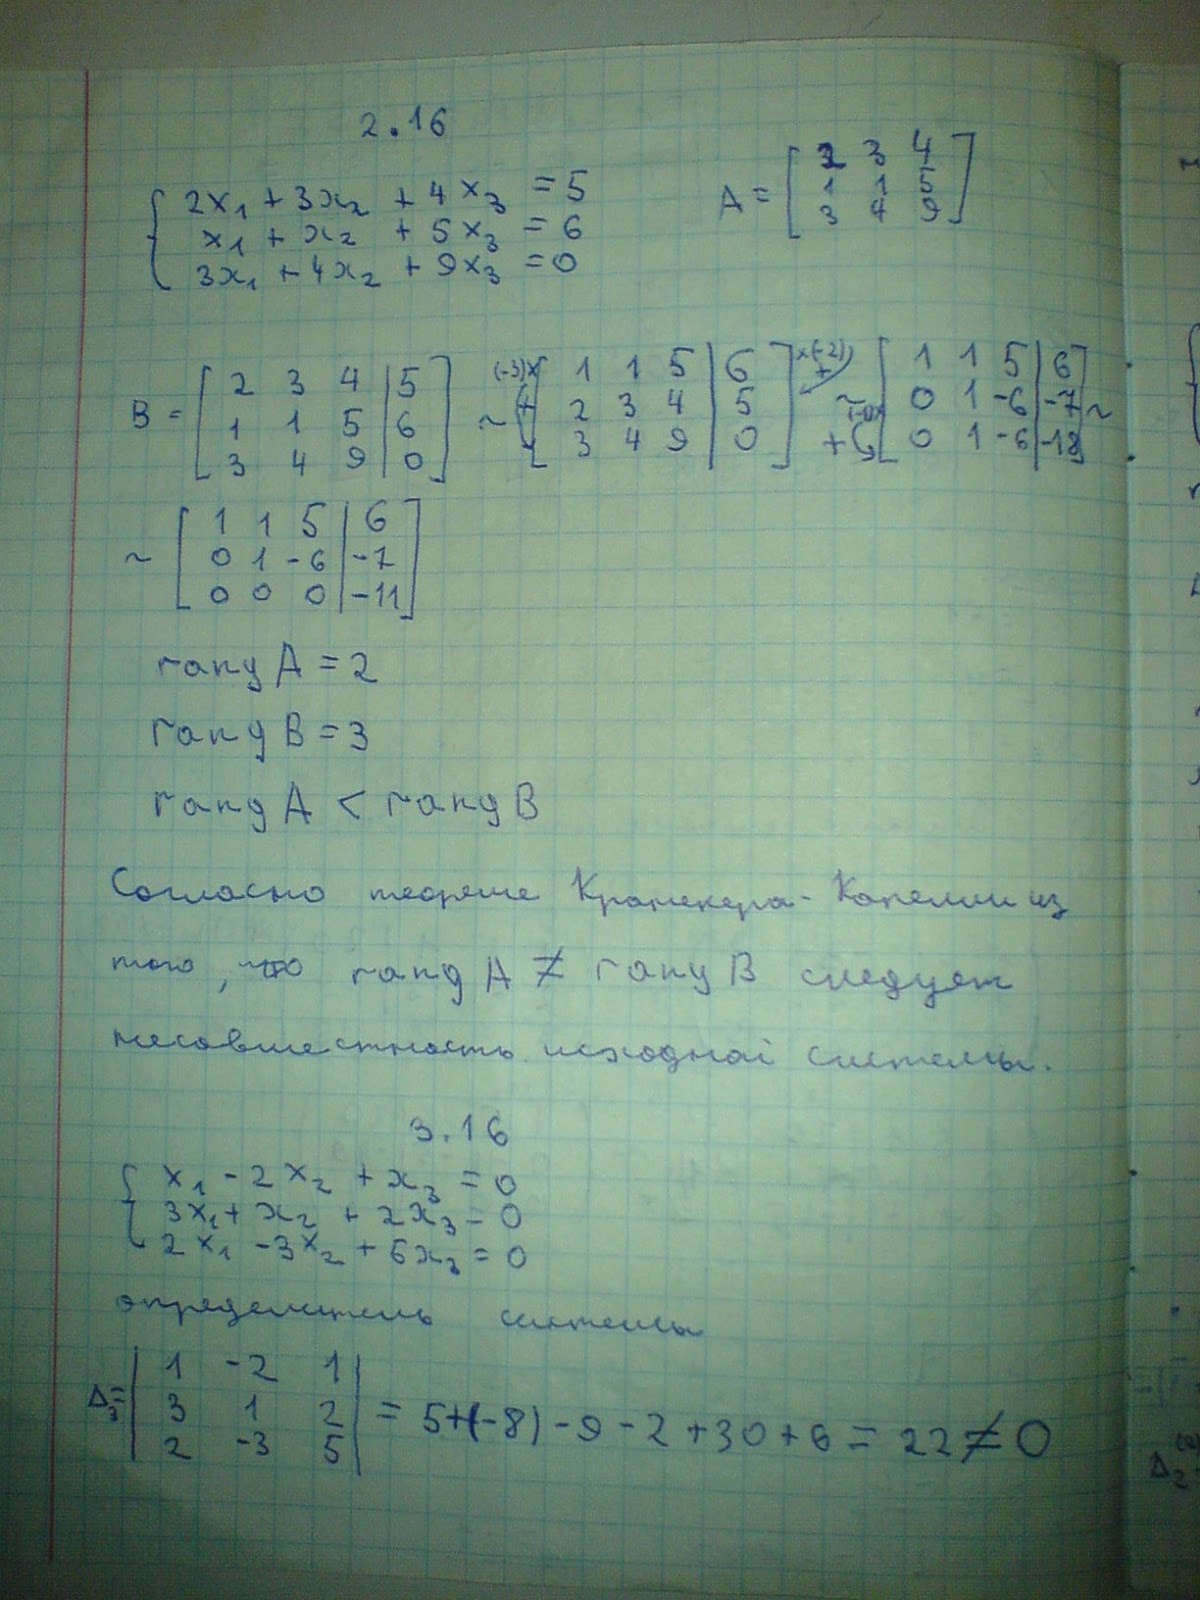 2.16
2x₁ + 3x₂ + 4x₃ = 5
x₁ + x₂ + 5x₃ = 6
3x₁ + 4x₂ + 9x₃ = 0
A = [ 2 3 4
1 1 5
3 4 9 ]
B = [ 2 3 4 | 5
1 1 5 | 6
3 4 9 | 0 ]
~ (-3)x + [ 1 1 5 | 6
2 3 4 | 5
3 4 9 | 0 ]
x(-2) + ~ + [ 1 1 5 | 6
0 1 -6 | -7
0 1 -6 | -18 ] ~
~ [ 1 1 5 | 6
0 1 -6 | -7
0 0 0 | -11 ]
rang A = 2
rang B = 3
rang A < rang B
Согласно теореме Кронекера-Капелли из
того, что rang A ≠ rang B следует
несовместность исходной системы.
3.16
x₁ - 2x₂ + x₃ = 0
3x₁ + x₂ + 2x₃ = 0
2x₁ - 3x₂ + 5x₃ = 0
определитель системы
Δ₃ = | 1 -2 1
3 1 2
2 -3 5 | = 5+(-8) - 9 - 2 + 30 + 6 = 22 ≠ 0